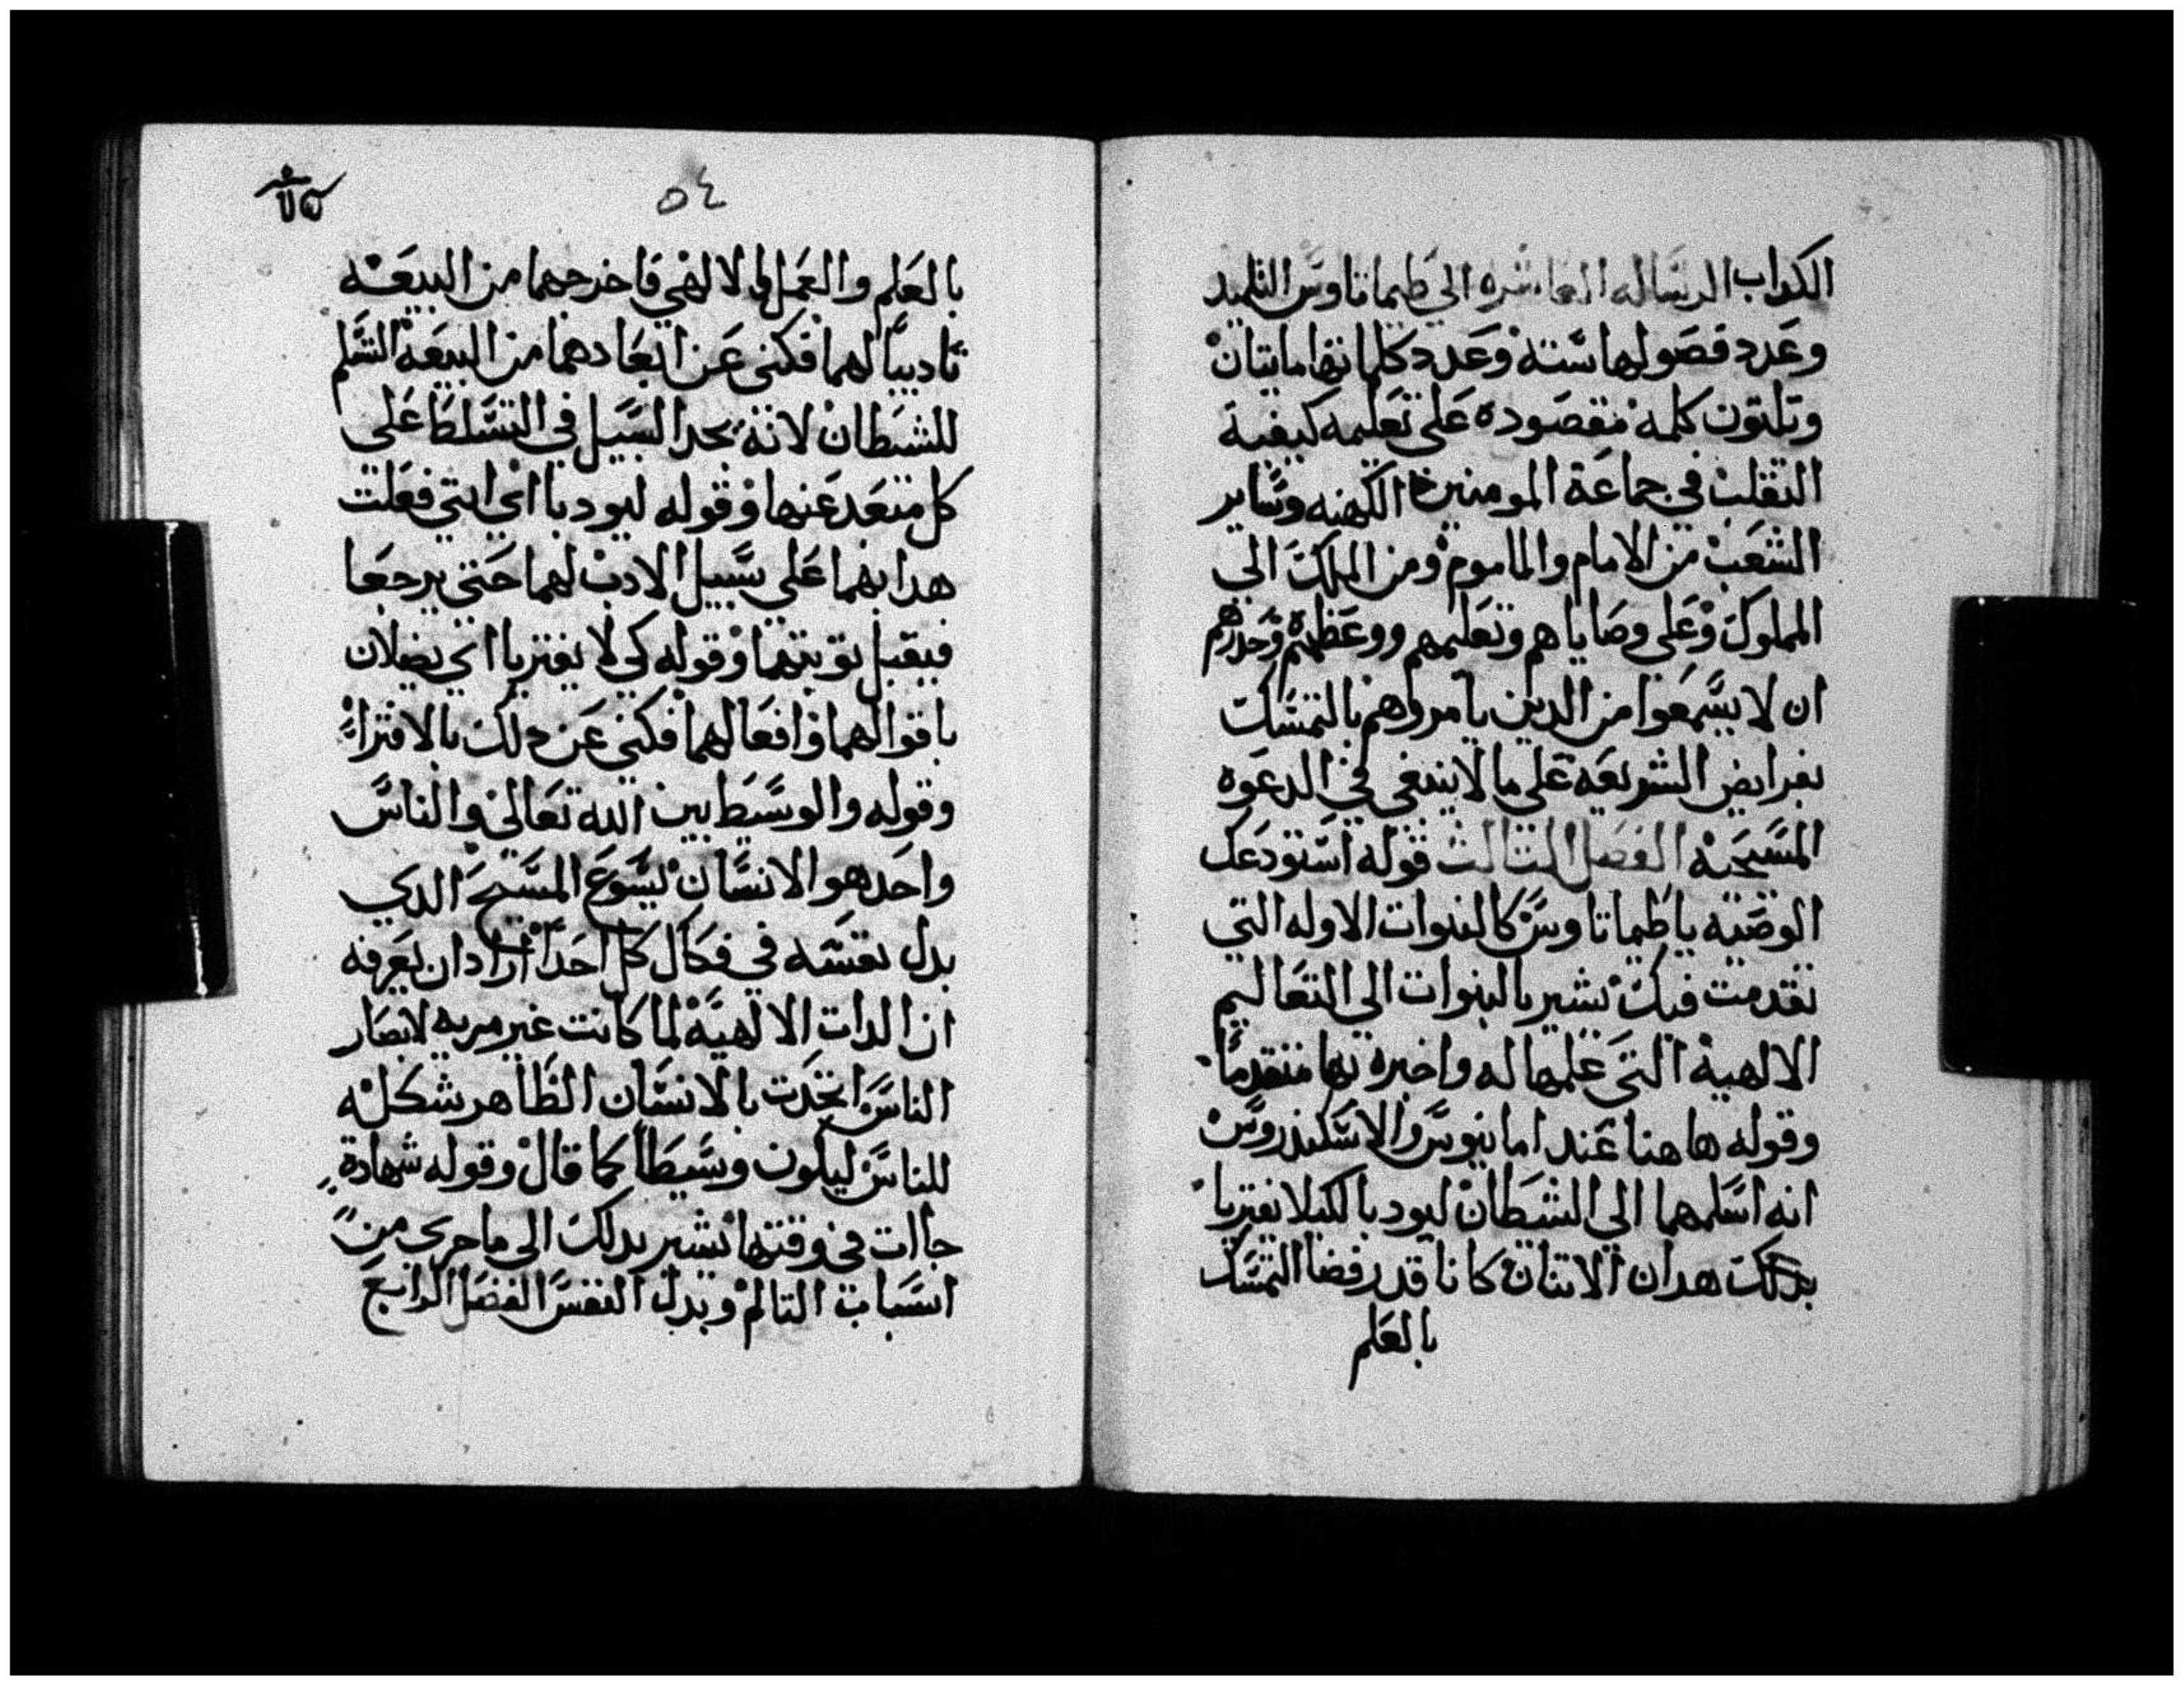 الكداب الرساله العاشره الى طيماتاوس التلميد
وعدد فصولها سته وعدد كلماتها مايتان
وتلتون كلمة مقصوده على تعليمه كيفية
التقلب في جماعة المومنين الكهنه وساير
الشعب من الامام والماموم ومن الملك الى
المملوك وعلى وصاياهم وتعليمهم ووعظهم وحدرهم
ان لا يسمعوا من الدين يامروهم بالتمسك
بفرايض الشريعه على ما لا ينبغي في الدعوه
المسيحيه الفصل التالت قوله استودعك
الوصيه يا طيماتاوس كالنبوات الاوله التي
تقدمت فيك يشير بالنبوات الى التعاليم
الالهية التي علمها له واخبره بها متقدما
وقوله هاهنا عند امانيوس والاسكندروس
انه اسلمهما الى الشيطان ليودبا لكيلا يفتريا
بدلك هدان الاتنان كانا قد رفضا التمسك
بالعلم
٥٤
بالعلم والعمل الالهي فاخرجهما من البيعه
تاديبا لهما فكنى عن ابعادهما من البيعة التسلم
للشيطان لانه يجد السبيل في التسلط على
كل متعد عنها وقوله ليودبا اي انني فعلت
هدا بهما على سبيل الادب لهما حتى يرجعا
فيقبل توبتهما وقوله كي لا يفتريا اي يضلان
باقوالهما وافعالهما فكنى عن دلك بالافتراء
وقوله والوسيط بين الله تعالى والناس
واحد هو الانسان يسوع المسيح الدي
بدل نفسه في فكاك كل احد اراد ان يعرفه
ان الدات الالهية لما كانت غير مريه لابصار
الناس اتحدت بالانسان الظاهر شكله
للناس ليكون وسيطا كما قال وقوله شهادة
جاات في وقتها يشير بدلك الى ما جرى من
اسباب التالم وبدل النفس الفصل الرابع